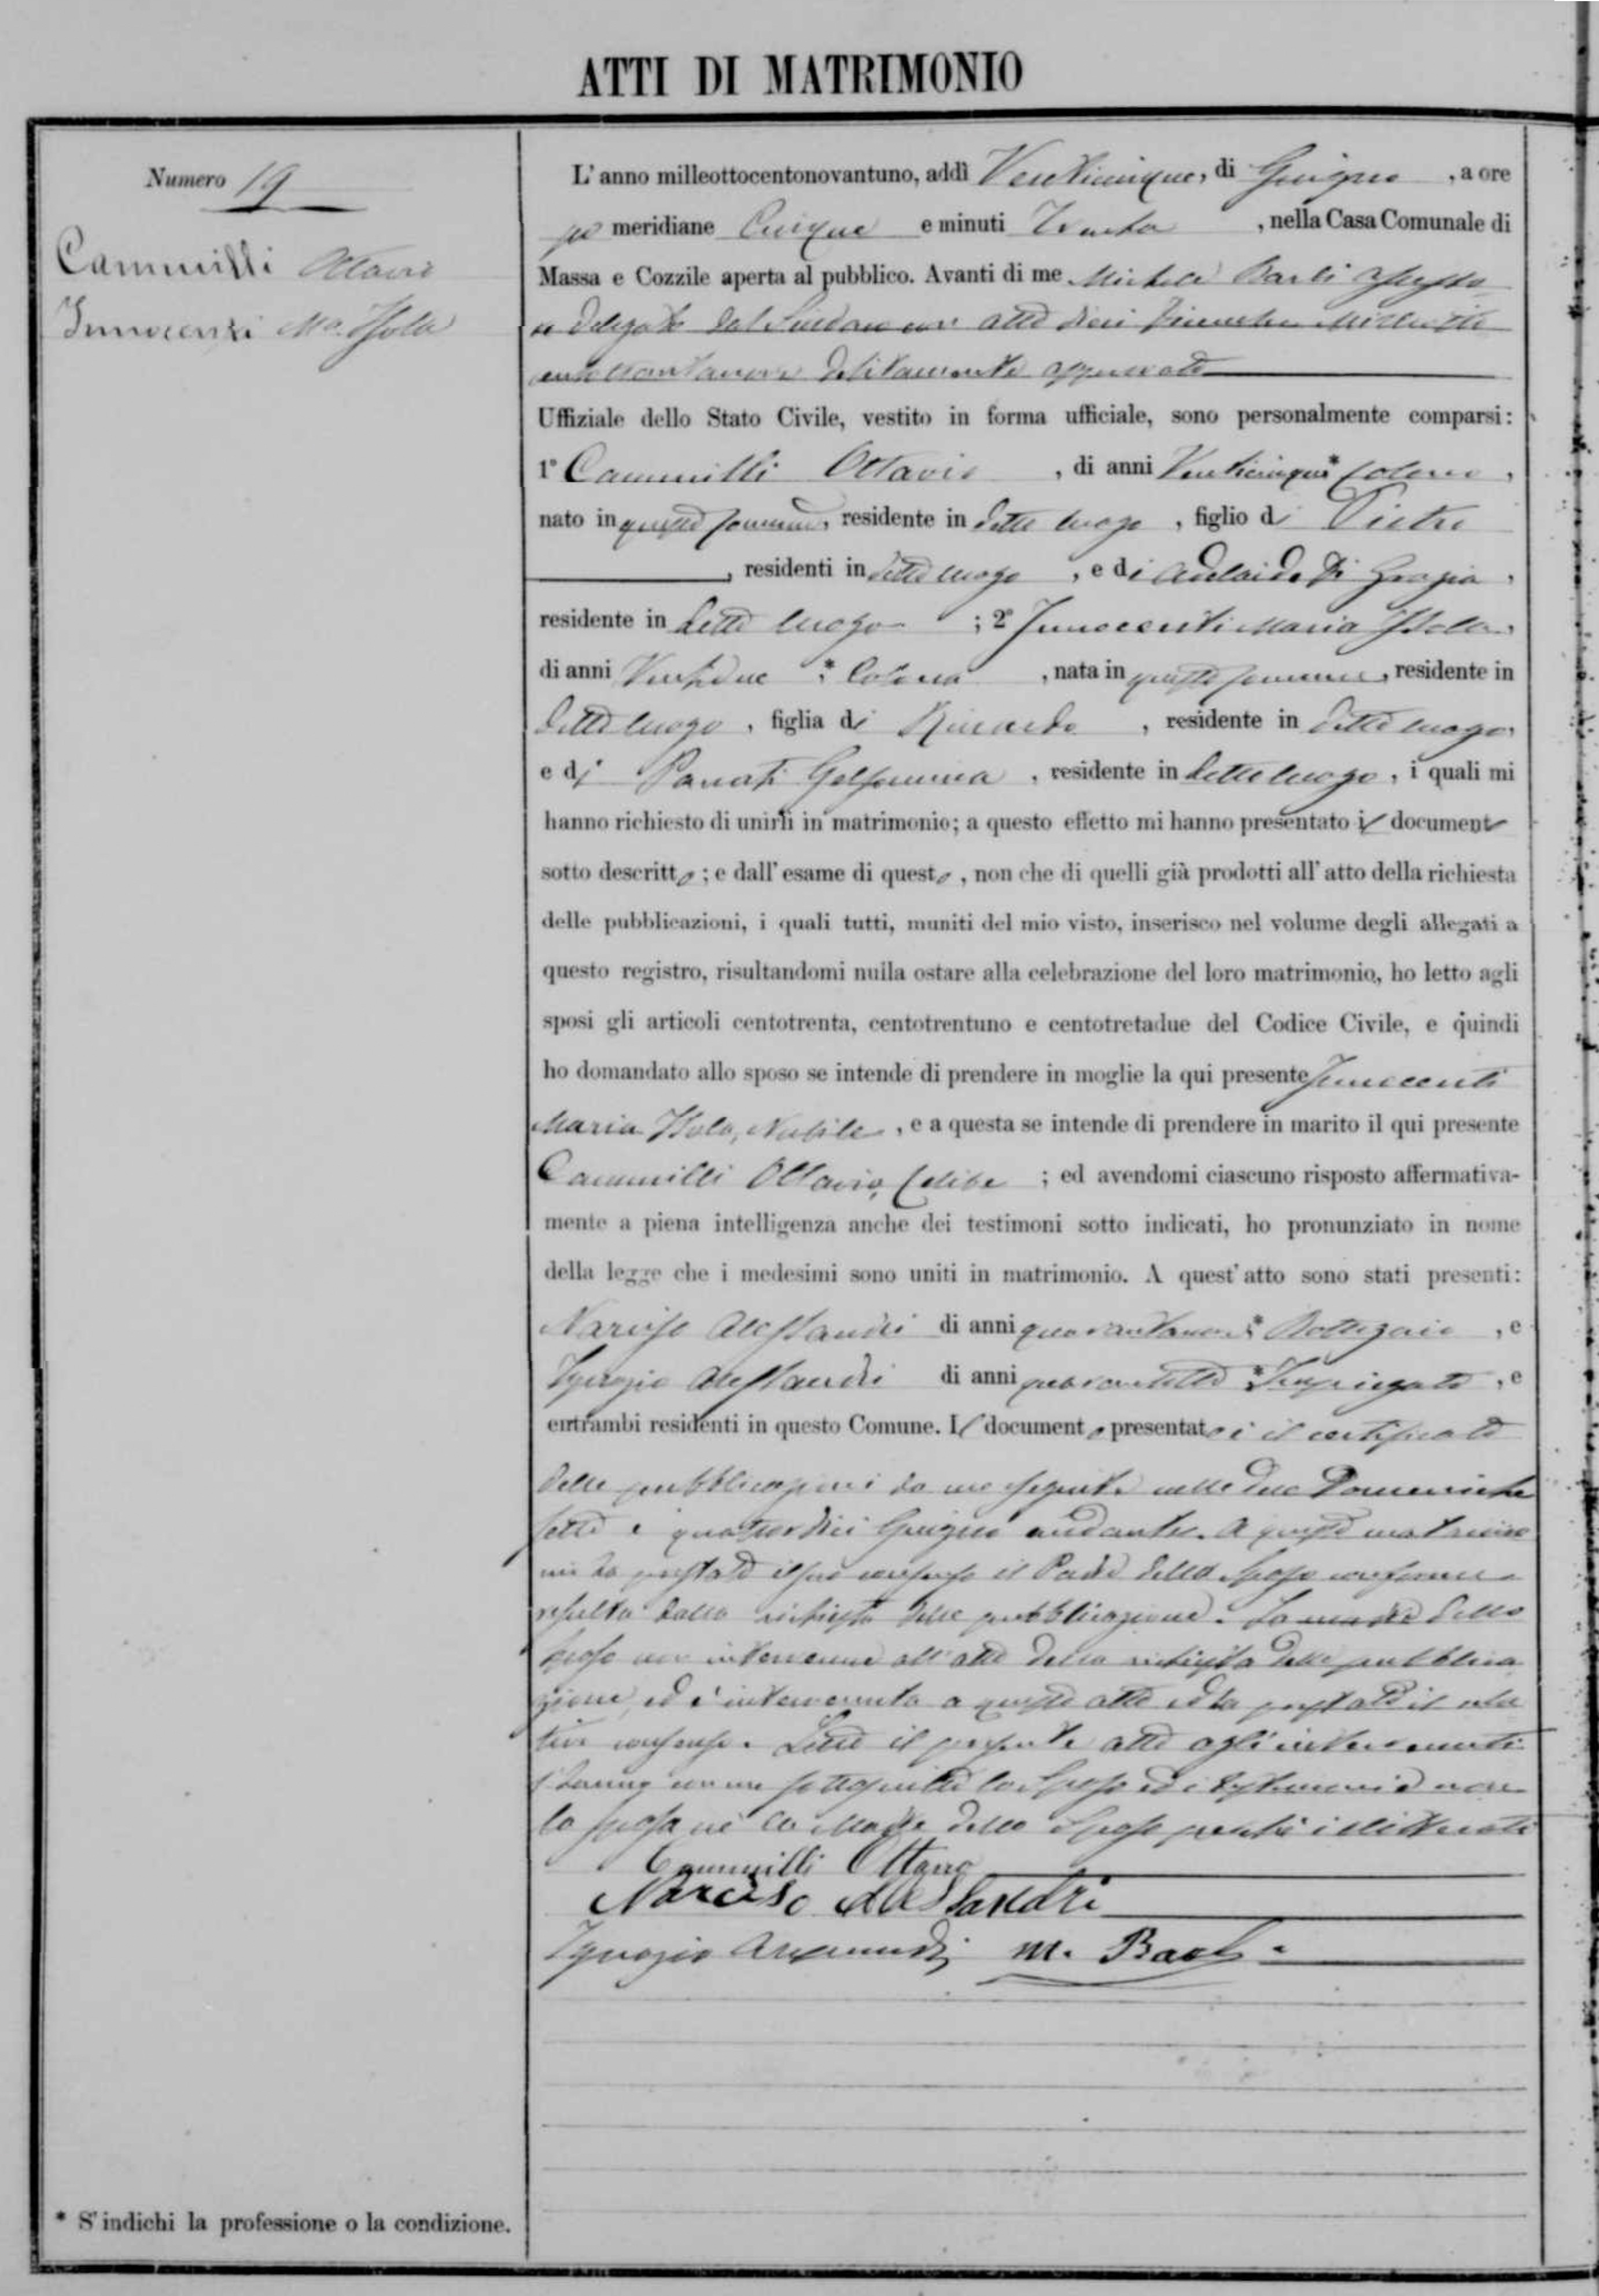 ATTI DI MATRIMONIO
Numero 19
Cammilli Ottavio
Innocenti Ma. Isola
L'anno milleottocentonovantuno, addì Venticinque, di Giugno, a ore
po meridiane Cinque e minuti Trenta, nella Casa Comunale di
Massa e Cozzile aperta al pubblico. Avanti di me Michele Barli
delegato dal Sindaco con atto dieci Dicembre Milleotto
debitamente approvato
Uffiziale dello Stato Civile, vestito in forma ufficiale, sono personalmente comparsi:
1° Cammilli Ottavio, di anni Venticinque* Colono,
nato in questo Comune, residente in detto luogo, figlio di Pietro
, residenti in detto luogo, e di Adelaide Di Grazia,
residente in detto luogo; 2° Innocenti Maria Isola,
di anni Ventidue * Colona, nata in questo Comune, residente in
detto luogo, figlia di, residente in detto luogo,
e di Panati Gelsomina, residente in detto luogo, i quali mi
hanno richiesto di unirli in matrimonio; a questo effetto mi hanno presentato il document
sotto descritto; e dall'esame di questo, non che di quelli già prodotti all'atto della richiesta
delle pubblicazioni, i quali tutti, muniti del mio visto, inserisco nel volume degli allegati a
questo registro, risultandomi nulla ostare alla celebrazione del loro matrimonio, ho letto agli
sposi gli articoli centotrenta, centotrentuno e centotretadue del Codice Civile, e quindi
ho domandato allo sposo se intende di prendere in moglie la qui presente Innocenti
Maria Isola, Nubile, e a questa se intende di prendere in marito il qui presente
Cammilli Ottavio, Celibe; ed avendomi ciascuno risposto affermativa-
mente a piena intelligenza anche dei testimoni sotto indicati, ho pronunziato in nome
della legge che i medesimi sono uniti in matrimonio. A quest'atto sono stati presenti:
Narciso Alessandri di anni quarantanove* Bottegaio, e
Ignazio Alessandri di anni quarantotto * Impiegato, e
entrambi residenti in questo Comune. Il documento presentato è il certificato
delle pubblicazioni da me eseguite nelle due Domeniche
sette e quattordici Giugno andante. A questo matrimonio
mi ha prestato il suo consenso il Padre dello Sposo conforme
resulta dalla richiesta delle pubblicazione. La madre dello
Sposo non intervenne all'atto della richiesta delle pubblica
zione, ed è intervenuta a questo atto ed ha prestato il rela
tivo consenso. Letto il presente atto agli intervenuti
l'hanno con me sottoscritto lo Sposo ed i testimoni e non
la sposa nè la Madre dello Sposo perchè illetterate
Cammilli Ottavio
Narciso Alessandri
Ignazio Alessandri M. Barli
* S'indichi la professione o la condizione.